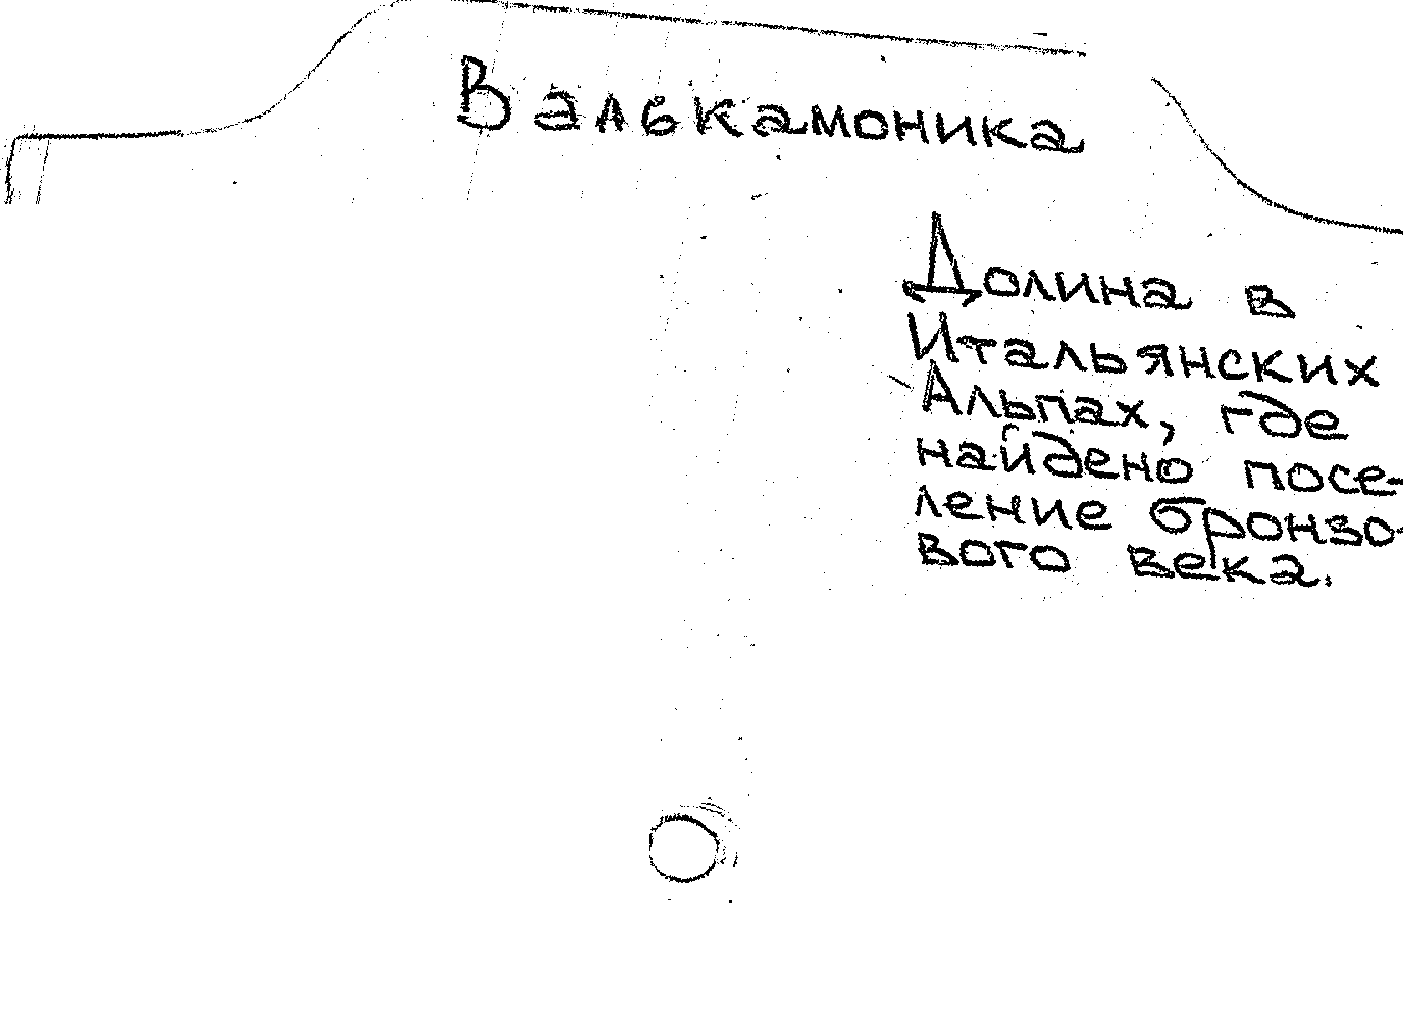 Валькамоника
Долина в
Итальянских
Альпах, где
найдено посе-
ление бронзо-
вого века.